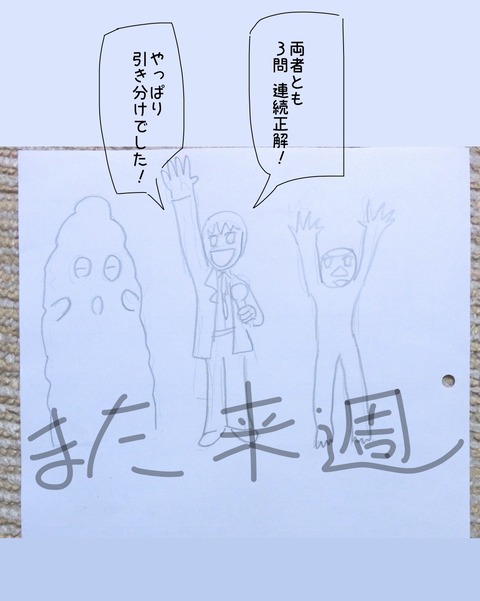 両者とも
3問 連続正解!
やっぱり
引き分けでした!
また来週